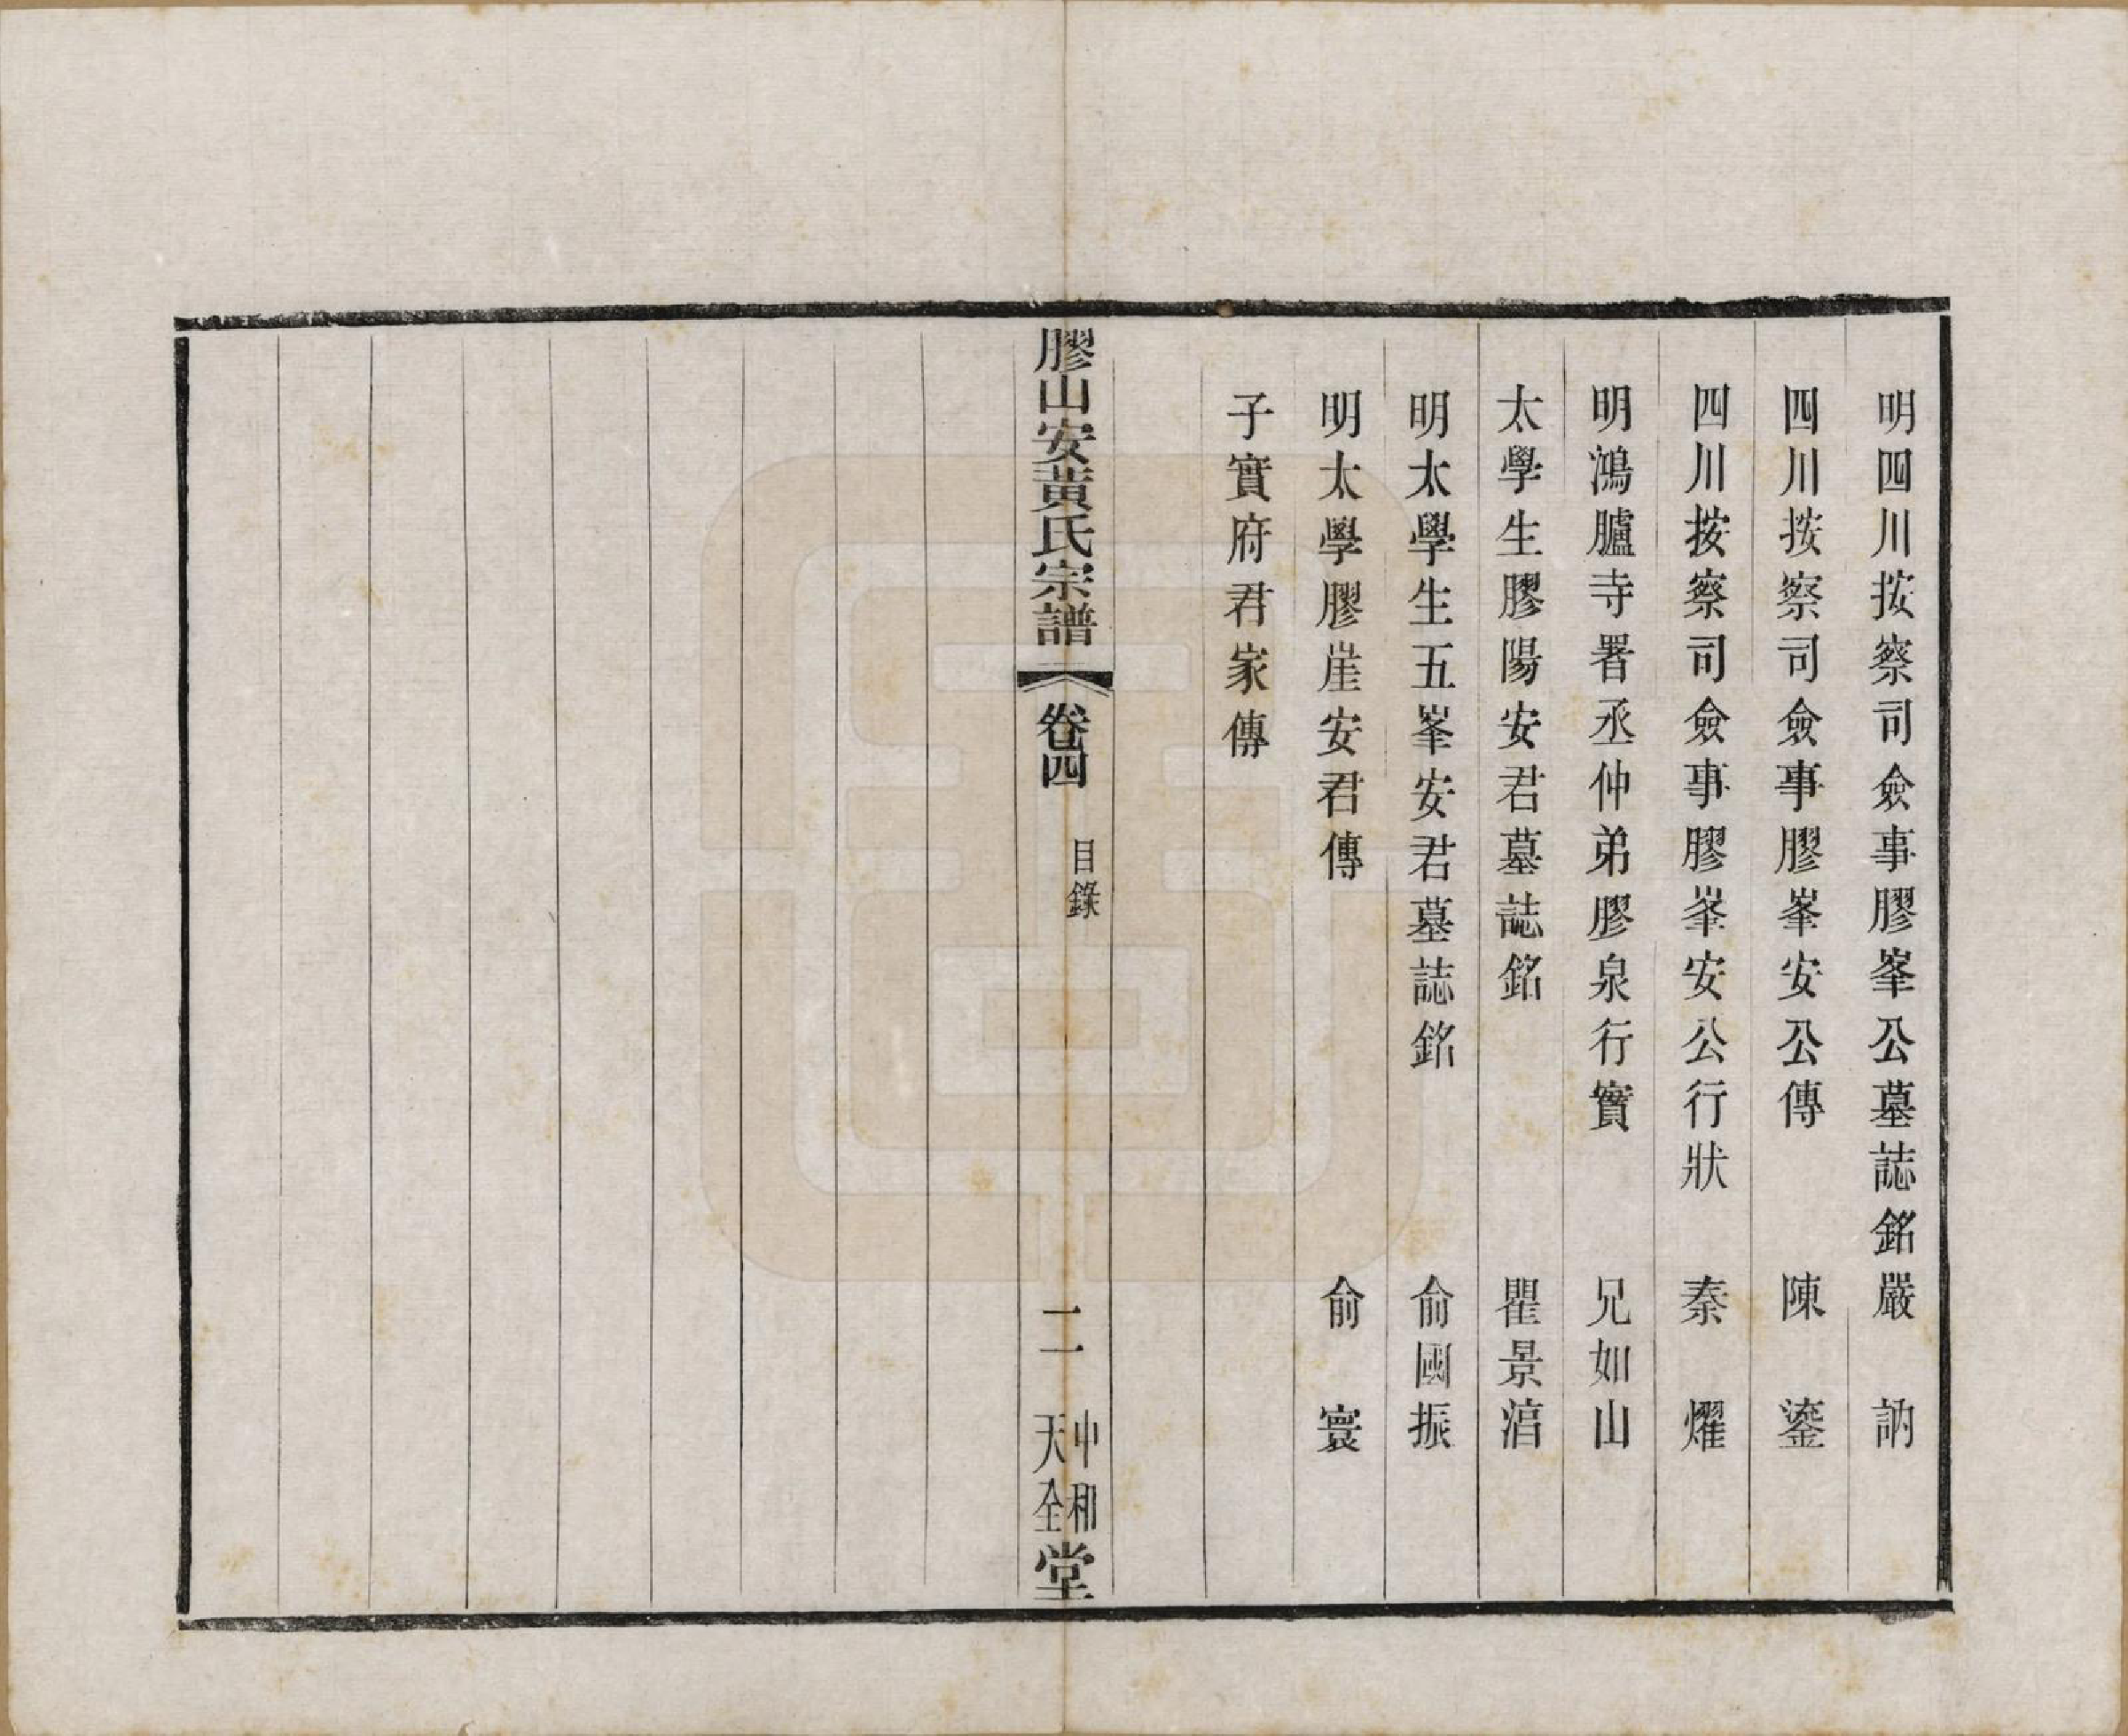 明四川按察司僉事膠峯公墓誌銘嚴　訥
四川按察司僉事膠峯安公傳　陳　鎏
四川按察司僉事膠峯安公行狀　秦　燿
明鴻臚寺署丞仲弟膠泉行實　兄如山
太學生膠陽安君墓誌銘　瞿景淳
明太學生五峯安君墓誌銘　俞國振
明太學膠崖安君傳　俞　寰
子實府君家傳
膠山安黃氏宗譜　卷四　目錄　二　中和天全堂